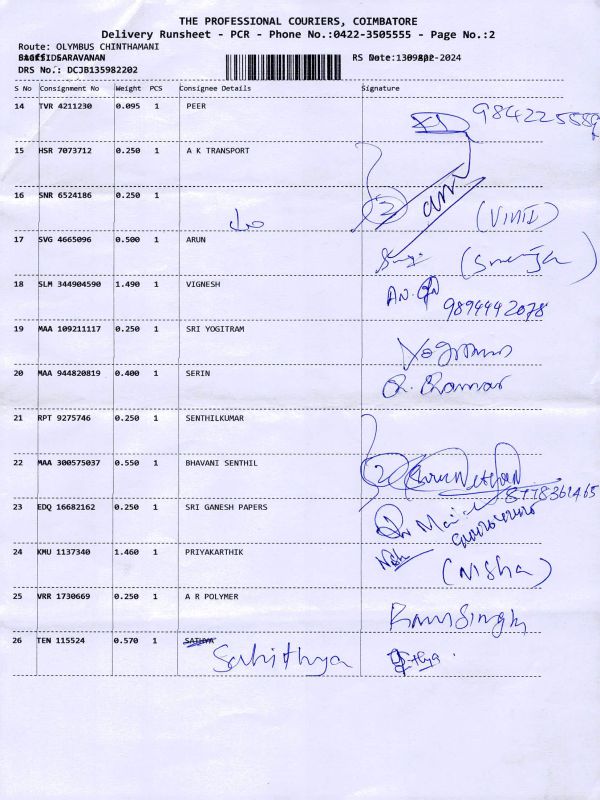 THE PROFESSIONAL COURIERS, COIMBATORE
Delivery Runsheet - PCR - Phone No.:0422-3505555 - Page No.:2
Route: OLYMBUS CHINTHAMANI
SARAVANAN
RS Date: -2024
DRS No.: DCJB135982202
S No Consignment No Weight PCS Consignee Details Signature
14 TVR 4211230 0.095 1 PEER
15 HSR 7073712 0.250 1 A K TRANSPORT
16 SNR 6524186 0.250 1
2 (Vinil)
17 SVG 4665096 0.500 1 ARUN
18 SLM 344904590 1.490 1 VIGNESH
9894442078
19 MAA 109211117 0.250 1 SRI YOGITRAM
20 MAA 944820819 0.400 1 SERIN
21 RPT 9275746 0.250 1 SENTHILKUMAR
22 MAA 300575037 0.550 1 BHAVANI SENTHIL
2
8778361465
23 EDQ 16682162 0.250 1 SRI GANESH PAPERS
24 KMU 1137340 1.460 1 PRIYAKARTHIK
(Nisha)
25 VRR 1730669 0.250 1 A R POLYMER
Ram Singh
26 TEN 115524 0.570 1 SATHYA
Sahithya